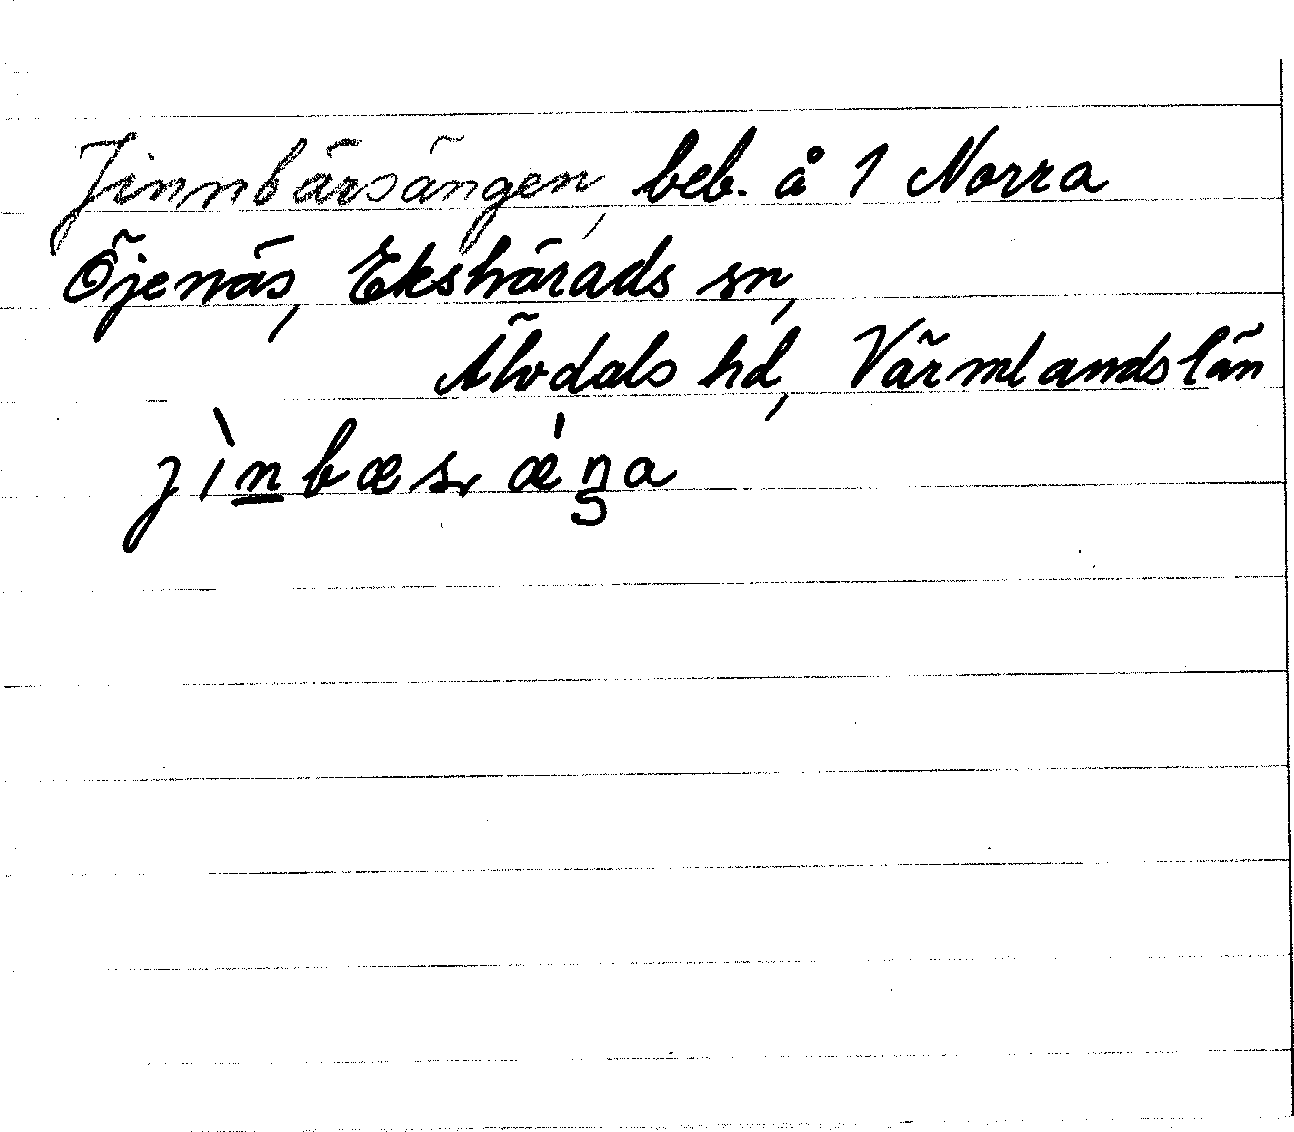 Jinnbärsängen, beb. å 1 Norra
Öjenäs, Ekshärads sn,
Älvdals hd, Värmlands län
jìnbæsʂ ǽŋa